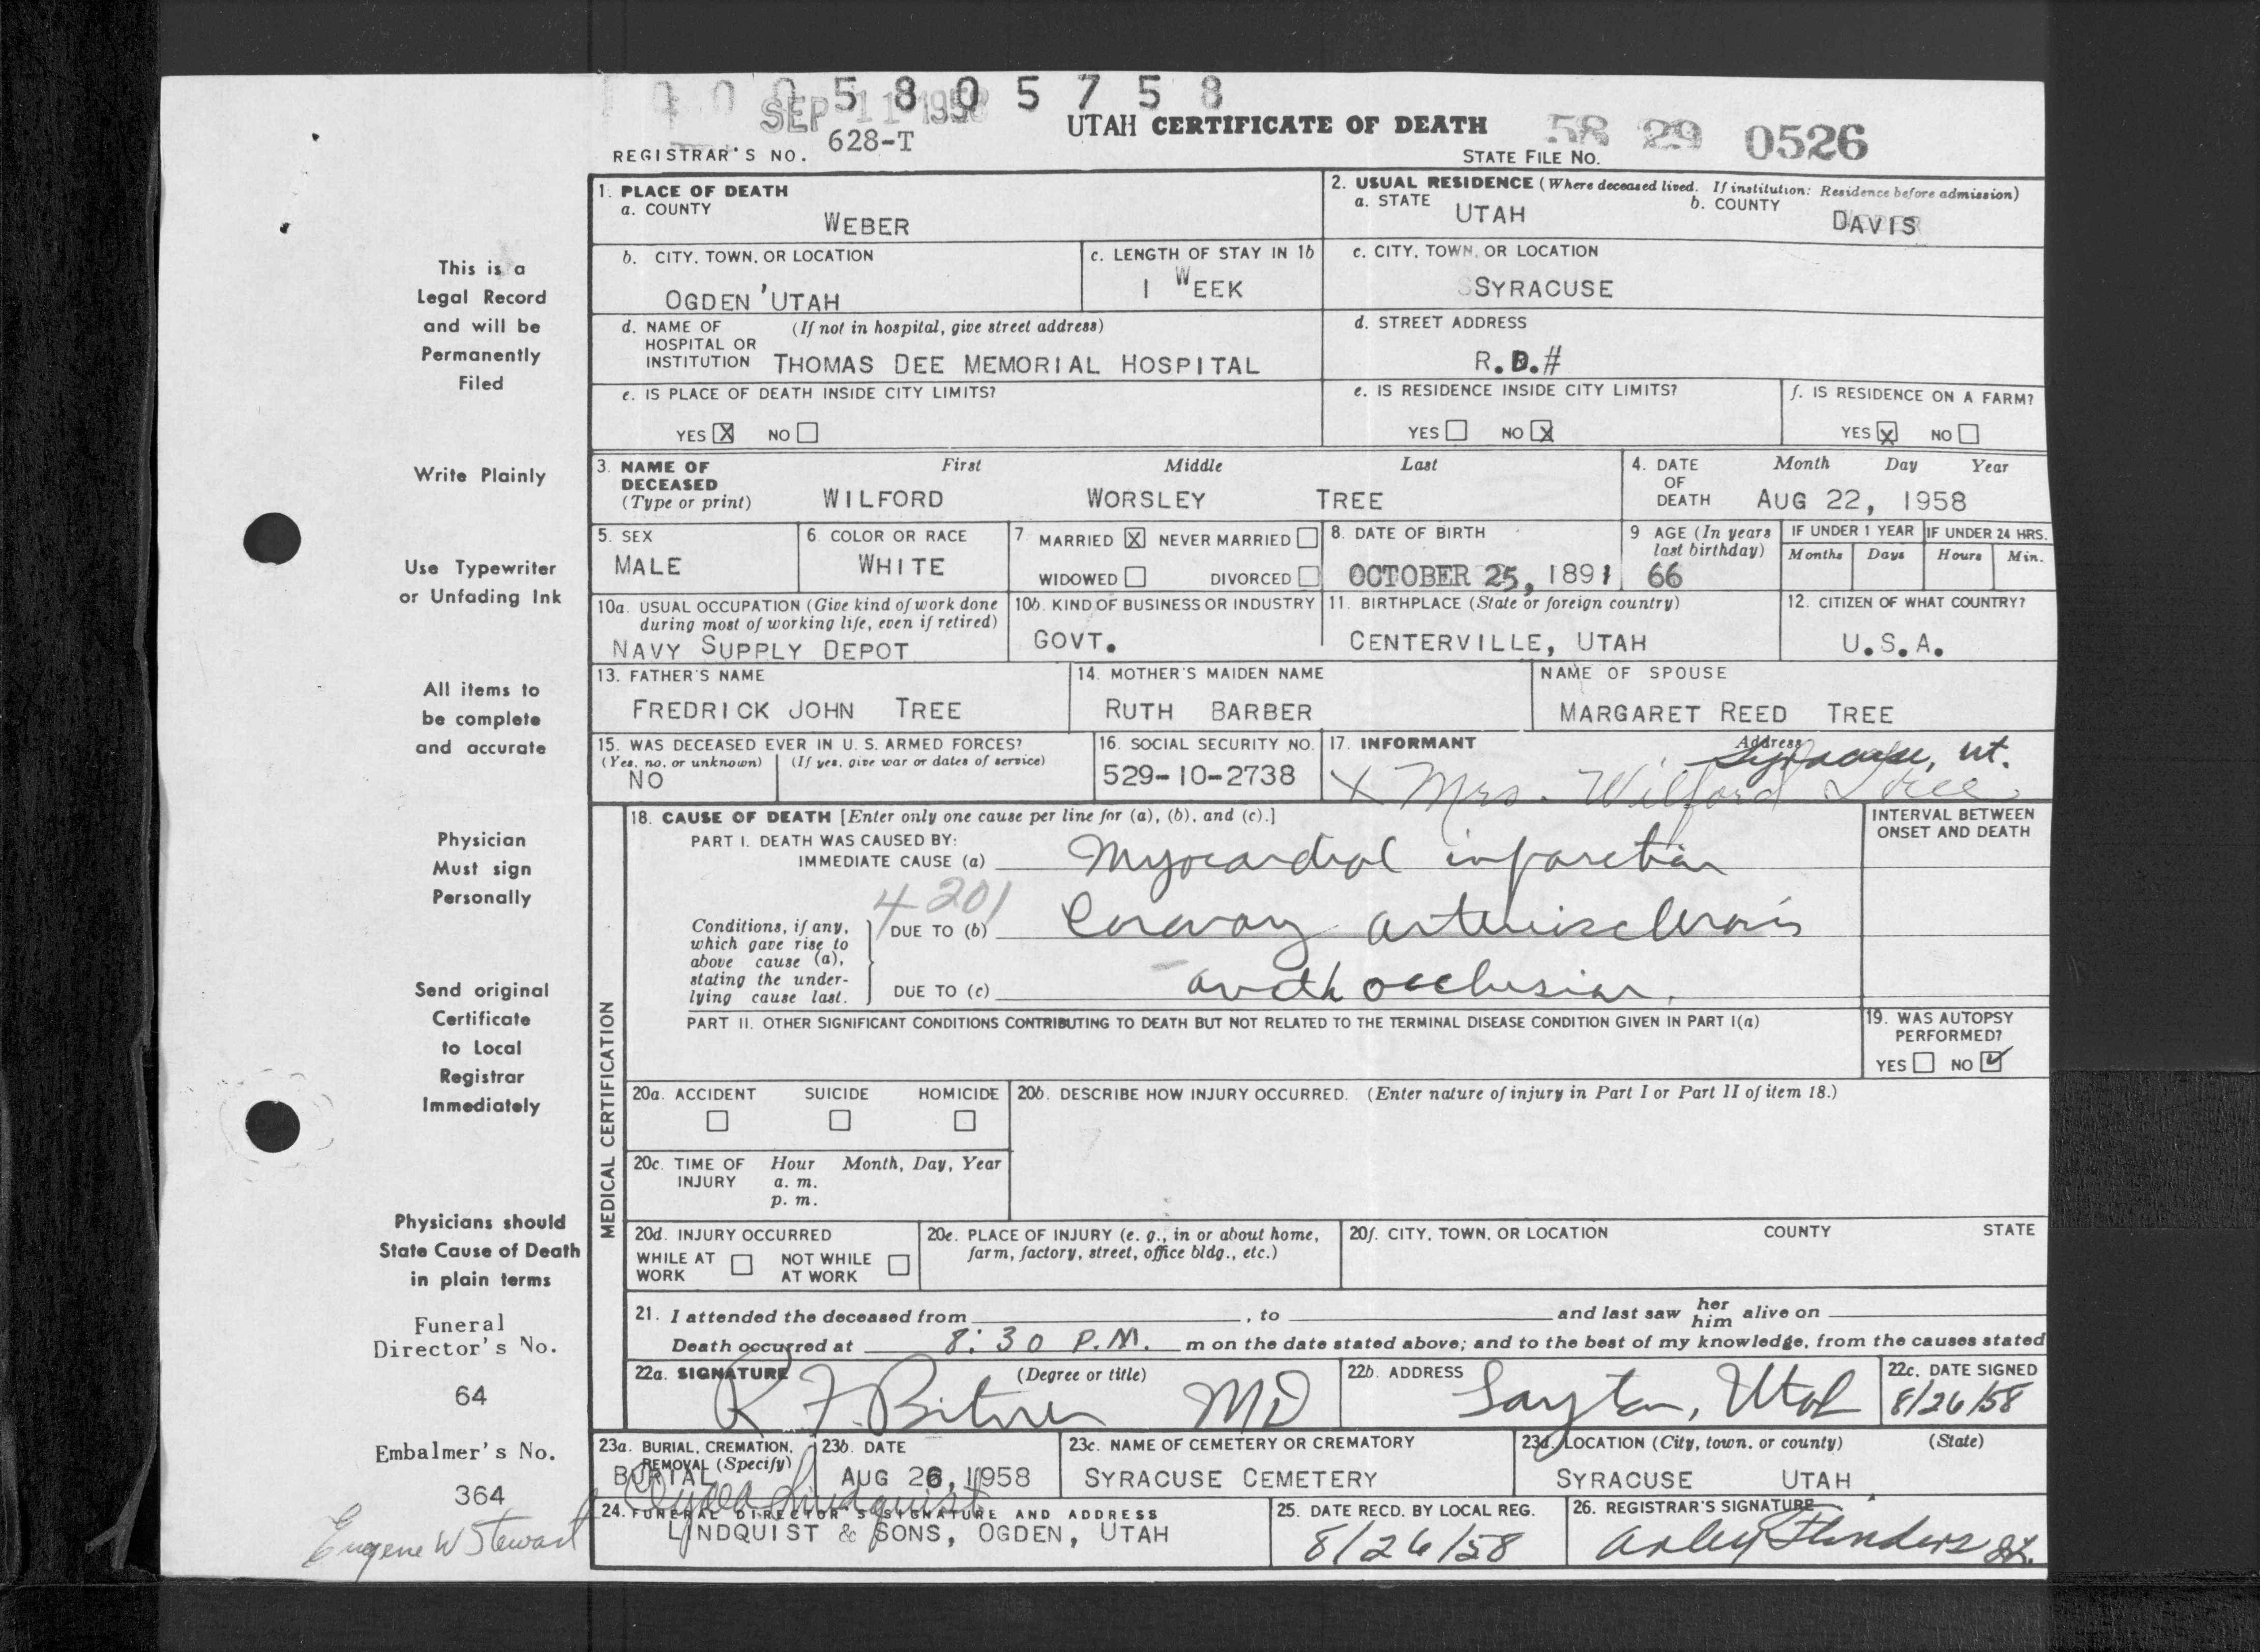 1 0 0 5 8 0 5 7 5 8
SEP 11 1958
REGISTRAR'S NO. 628-T
UTAH CERTIFICATE OF DEATH
58 29 0526
STATE FILE NO.
1. PLACE OF DEATH
a. COUNTY
WEBER
2. USUAL RESIDENCE (Where deceased lived. If institution: Residence before admission)
a. STATE UTAH b. COUNTY DAVIS
b. CITY, TOWN, OR LOCATION
OGDEN 'UTAH
c. LENGTH OF STAY IN 1b
1 WEEK
c. CITY, TOWN, OR LOCATION
SYRACUSE
d. NAME OF (If not in hospital, give street address)
HOSPITAL OR
INSTITUTION THOMAS DEE MEMORIAL HOSPITAL
d. STREET ADDRESS
R.D.#
e. IS PLACE OF DEATH INSIDE CITY LIMITS?
YES X NO
e. IS RESIDENCE INSIDE CITY LIMITS?
YES NO X
f. IS RESIDENCE ON A FARM?
YES X NO
3. NAME OF First Middle Last
DECEASED
(Type or print) WILFORD WORSLEY TREE
4. DATE Month Day Year
OF
DEATH AUG 22, 1958
5. SEX
MALE
6. COLOR OR RACE
WHITE
7 MARRIED X NEVER MARRIED
WIDOWED DIVORCED
8. DATE OF BIRTH
OCTOBER 25, 1891
9 AGE (In years
last birthday)
66
IF UNDER 1 YEAR
Months Days
IF UNDER 24 HRS.
Hours Min.
10a. USUAL OCCUPATION (Give kind of work done
during most of working life, even if retired)
NAVY SUPPLY DEPOT
10b. KIND OF BUSINESS OR INDUSTRY
GOVT.
11. BIRTHPLACE (State or foreign country)
CENTERVILLE, UTAH
12. CITIZEN OF WHAT COUNTRY?
U.S.A.
13. FATHER'S NAME
FREDRICK JOHN TREE
14. MOTHER'S MAIDEN NAME
RUTH BARBER
NAME OF SPOUSE
MARGARET REED TREE
15. WAS DECEASED EVER IN U. S. ARMED FORCES?
(Yes, no, or unknown) (If yes, give war or dates of service)
NO
16. SOCIAL SECURITY NO.
529-10-2738
17. INFORMANT Address
Syracuse, Ut.
X Mrs. Wilford Tree
18. CAUSE OF DEATH [Enter only one cause per line for (a), (b), and (c).]
INTERVAL BETWEEN
ONSET AND DEATH
PART I. DEATH WAS CAUSED BY:
IMMEDIATE CAUSE (a) Myocardial infarction
4201
Conditions, if any,
which gave rise to
above cause (a),
stating the under-
lying cause last.
DUE TO (b) Coronary arteriosclerosis
DUE TO (c) with occlusion.
PART II. OTHER SIGNIFICANT CONDITIONS CONTRIBUTING TO DEATH BUT NOT RELATED TO THE TERMINAL DISEASE CONDITION GIVEN IN PART I(a)
19. WAS AUTOPSY
PERFORMED?
YES NO ✓
20a. ACCIDENT SUICIDE HOMICIDE
20b. DESCRIBE HOW INJURY OCCURRED. (Enter nature of injury in Part I or Part II of item 18.)
20c. TIME OF Hour Month, Day, Year
INJURY a. m.
p. m.
20d. INJURY OCCURRED
WHILE AT NOT WHILE
WORK AT WORK
20e. PLACE OF INJURY (e. g., in or about home,
farm, factory, street, office bldg., etc.)
20f. CITY, TOWN, OR LOCATION COUNTY STATE
21. I attended the deceased from , to and last saw her him alive on
Death occurred at 8:30 P.M. m on the date stated above; and to the best of my knowledge, from the causes stated
22a. SIGNATURE (Degree or title)
R F. Bitner MD
22b. ADDRESS
Layton, Utah
22c. DATE SIGNED
8/26/58
23a. BURIAL, CREMATION,
REMOVAL (Specify)
BURIAL
23b. DATE
AUG 26, 1958
23c. NAME OF CEMETERY OR CREMATORY
SYRACUSE CEMETERY
23d. LOCATION (City, town, or county) (State)
SYRACUSE UTAH
Lindquist
24. FUNERAL DIRECTOR'S SIGNATURE AND ADDRESS
LINDQUIST & SONS, OGDEN, UTAH
25. DATE RECD. BY LOCAL REG.
8/26/58
26. REGISTRAR'S SIGNATURE
Arley Flinders
MEDICAL CERTIFICATION
This is a
Legal Record
and will be
Permanently
Filed
Write Plainly
Use Typewriter
or Unfading Ink
All items to
be complete
and accurate
Physician
Must sign
Personally
Send original
Certificate
to Local
Registrar
Immediately
Physicians should
State Cause of Death
in plain terms
Funeral
Director's No.
64
Embalmer's No.
364
Eugene W Stewart